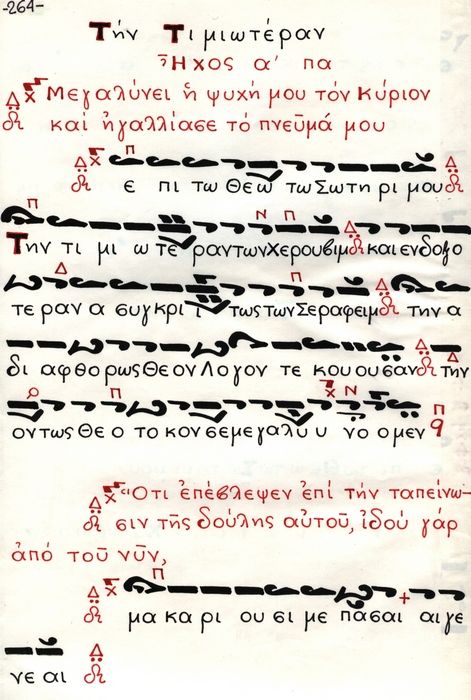 -264-
Τήν Τιμιωτέραν
Ἦχος α' πα
Μεγαλύνει ἡ ψυχή μου τόν Κύριον
καί ἠγαλλίασε τό πνεῦμά μου
ε πι τω Θεω τω Σωτη ρι μου
Την τι μι ω τε ραν των χερουβιμ και ενδοξο
τε ραν α συγκρι ι τως των Σεραφειμ την α
δι αφθορως Θεον Λογον τε κου ουσαν την
οντως Θε ο το κον σε μεγαλυ υ νο ο μεν
“Ότι ἐπέβλεψεν ἐπί τήν ταπείνω-
σιν τῆς δούλης αὐτοῦ, ἰδού γάρ
ἀπό τοῦ νῦν,
μα κα ρι ου σι με πασαι αι γε
νε αι